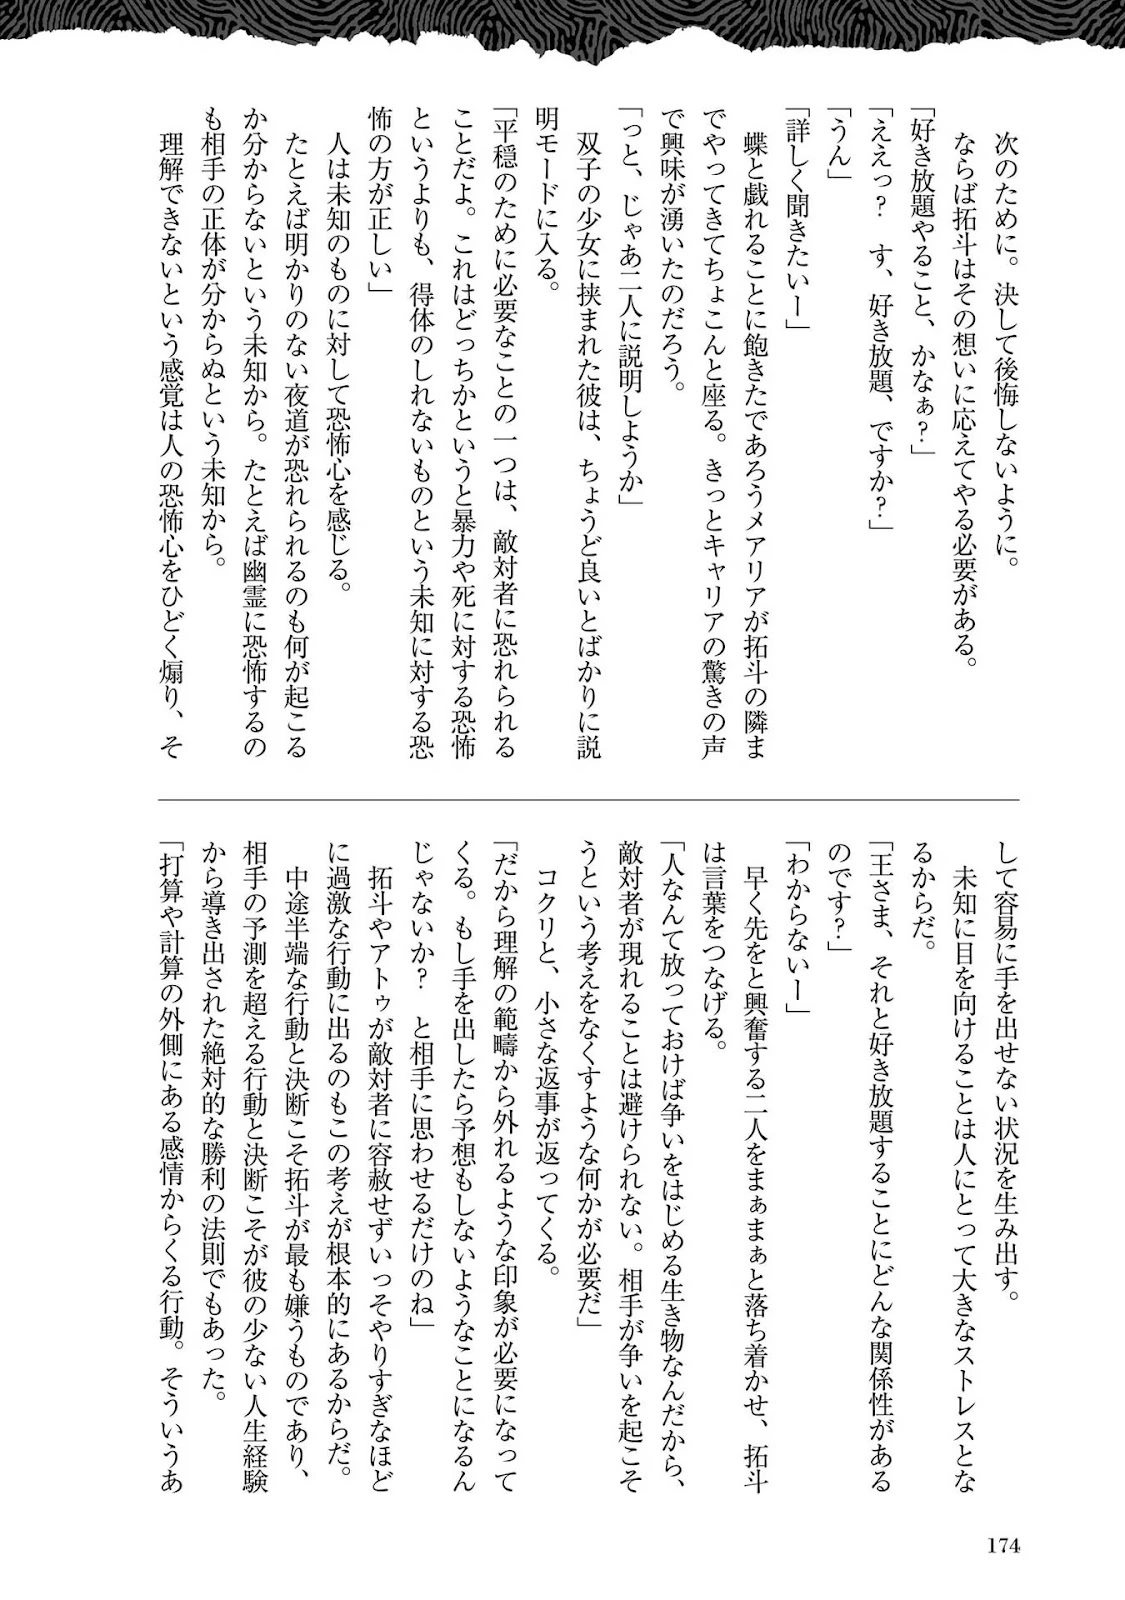 次のために。決して後悔しないように。
ならば拓斗はその想いに応えてやる必要がある。
「好き放題やること、かなぁ？」
「ええっ？　す、好き放題、ですか？」
「うん」
「詳しく聞きたいー」
蝶と戯れることに飽きたであろうメアリアが拓斗の隣ま
でやってきてちょこんと座る。きっとキャリアの驚きの声
で興味が湧いたのだろう。
「っと、じゃあ二人に説明しようか」
双子の少女に挟まれた彼は、ちょうど良いとばかりに説
明モードに入る。
「平穏のために必要なことの一つは、敵対者に恐れられる
ことだよ。これはどっちかというと暴力や死に対する恐怖
というよりも、得体のしれないものという未知に対する恐
怖の方が正しい」
人は未知のものに対して恐怖心を感じる。
たとえば明かりのない夜道が恐れられるのも何が起こる
か分からないという未知から。たとえば幽霊に恐怖するの
も相手の正体が分からぬという未知から。
理解できないという感覚は人の恐怖心をひどく煽り、そ
して容易に手を出せない状況を生み出す。
未知に目を向けることは人にとって大きなストレスとな
るからだ。
「王さま、それと好き放題することにどんな関係性がある
のです？」
「わからないー」
早く先をと興奮する二人をまぁまぁと落ち着かせ、拓斗
は言葉をつなげる。
「人なんて放っておけば争いをはじめる生き物なんだから、
敵対者が現れることは避けられない。相手が争いを起こそ
うという考えをなくすような何かが必要だ」
コクリと、小さな返事が返ってくる。
「だから理解の範疇から外れるような印象が必要になって
くる。もし手を出したら予想もしないようなことになるん
じゃないか？　と相手に思わせるだけのね」
拓斗やアトゥが敵対者に容赦せずいっそやりすぎなほど
に過激な行動に出るのもこの考えが根本的にあるからだ。
中途半端な行動と決断こそ拓斗が最も嫌うものであり、
相手の予測を超える行動と決断こそが彼の少ない人生経験
から導き出された絶対的な勝利の法則でもあった。
「打算や計算の外側にある感情からくる行動。そういうあ
174